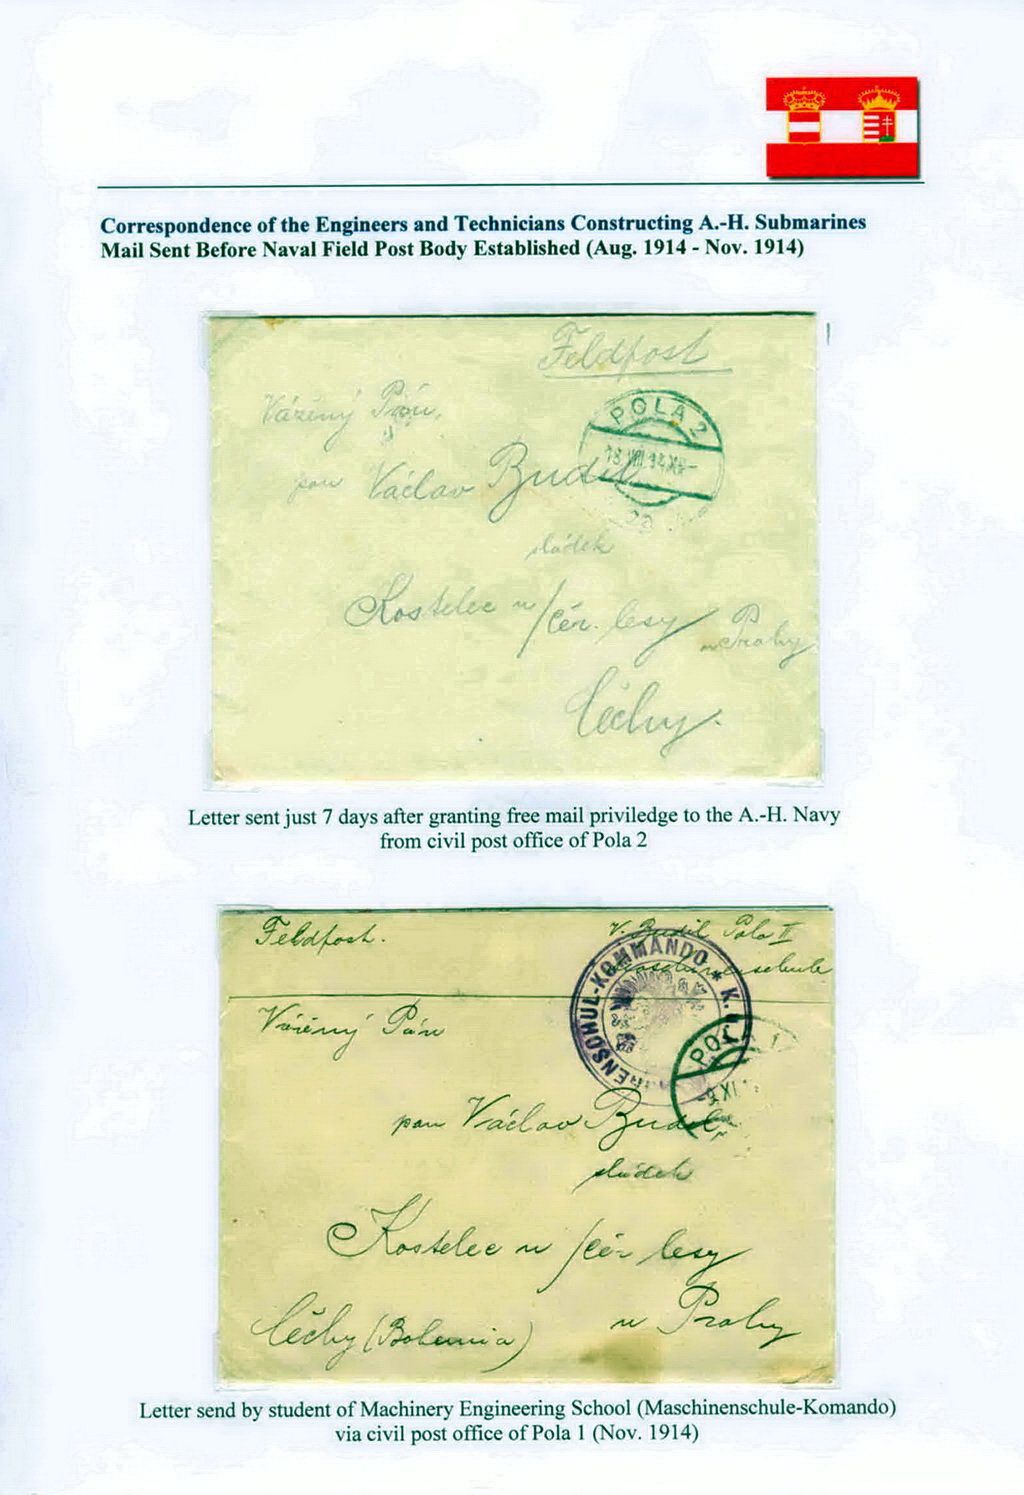 Correspondence of the Engineers and Technicians Constructing A.-H. Submarines
Mail Sent Before Naval Field Post Body Established (Aug. 1914 - Nov. 1914)
Feldpost
POLA 2
Vázený Pán,
pan Václav Budil
sládek
Kostelec n/čer. lesy
u Prahy
Čechy.
Letter sent just 7 days after granting free mail priviledge to the A.-H. Navy
from civil post office of Pola 2
Feldpost.
V. Budil Pola II
Maschinenschule
MASCHINENSCHUL-KOMMANDO * K.
Vázený Pán
pan Václav Budil
sládek
Kostelec n/čer lesy
u Prahy
Čechy (Bohemia)
Letter send by student of Machinery Engineering School (Maschinenschule-Komando)
via civil post office of Pola 1 (Nov. 1914)